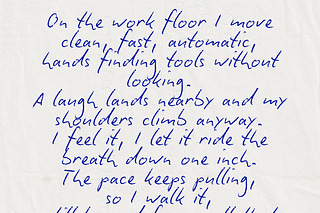 On the work floor I move
clean, fast, automatic,
hands finding tools without
looking.
A laugh lands nearby and my
shoulders climb anyway.
I feel it, I let it ride the
breath down one inch.
The pace keeps pulling,
so I walk it,